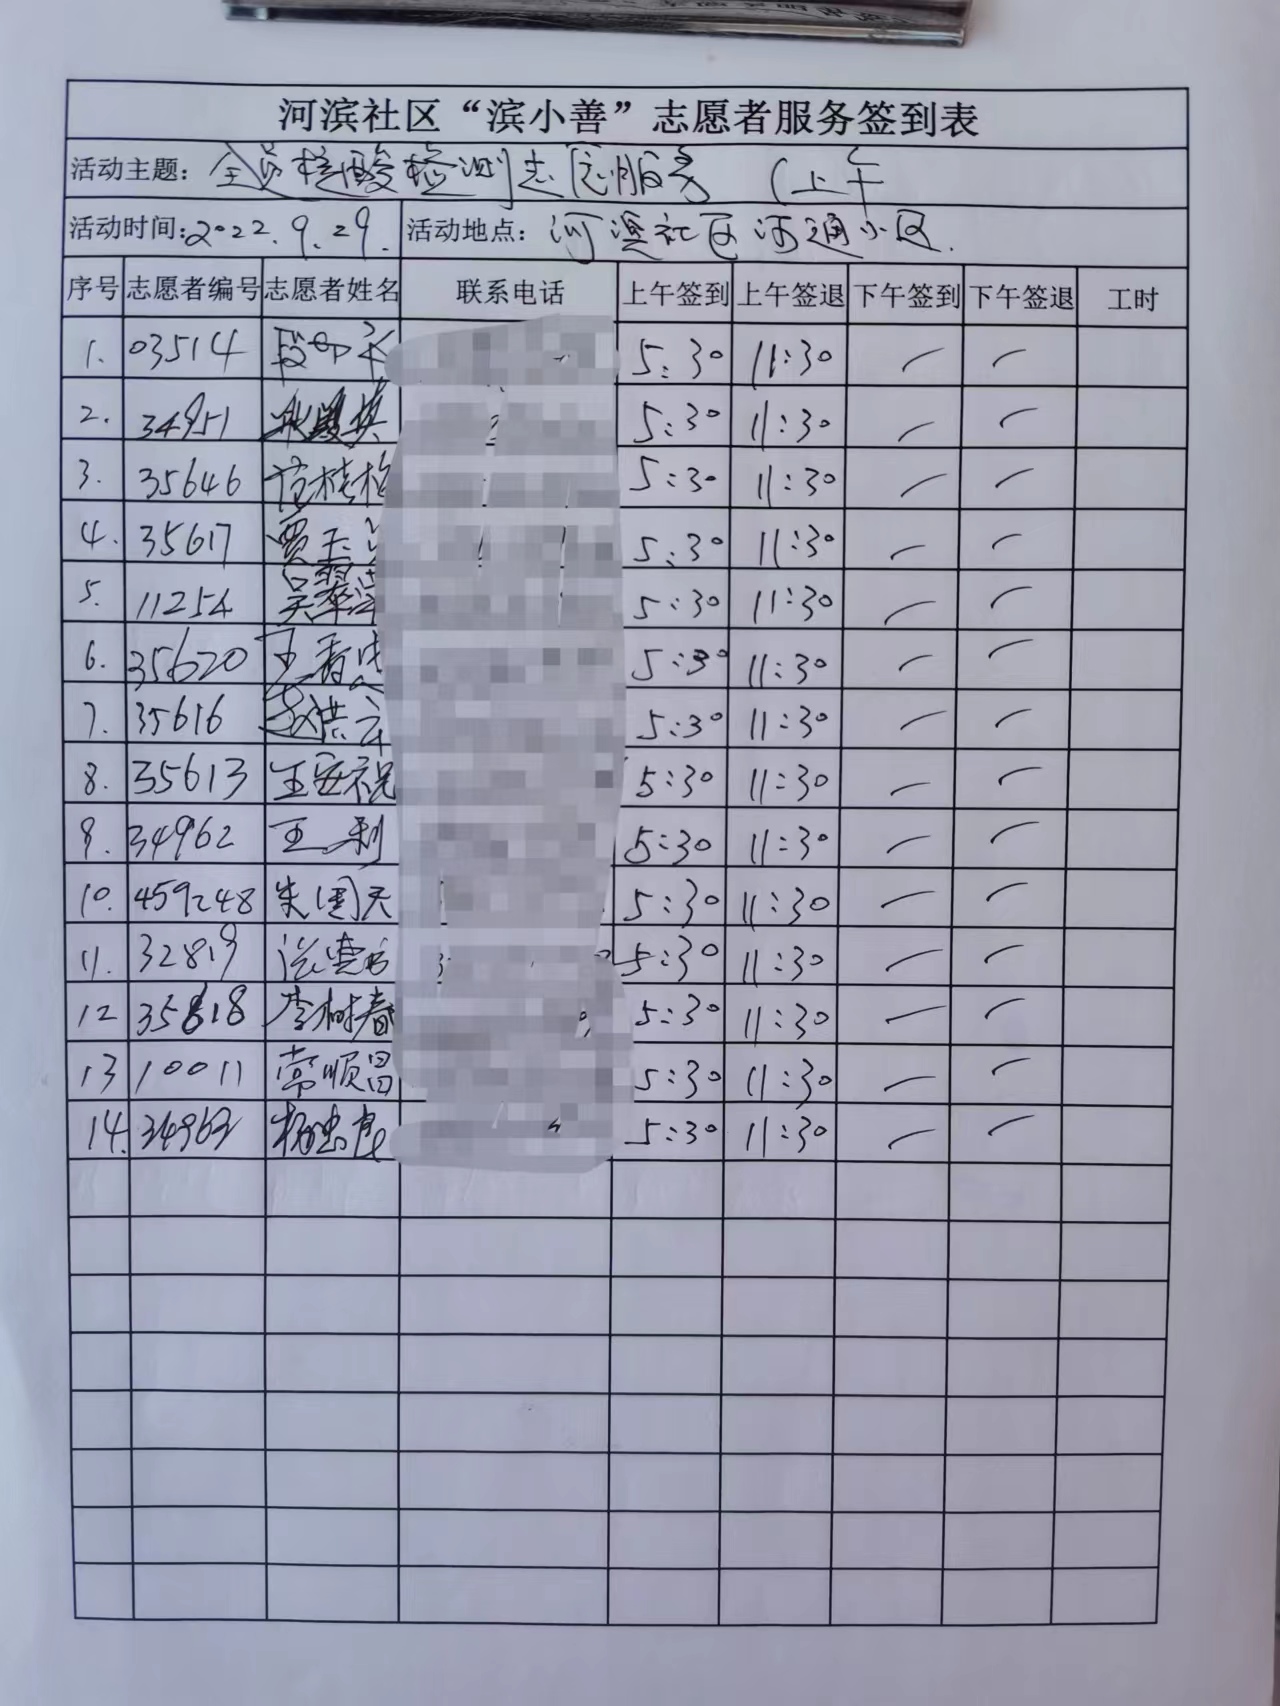 河滨社区“滨小善”志愿者服务签到表
活动主题：全员核酸检测志愿服务 （上午
活动时间：2022.9.29. 活动地点：河滨社区河通小区.
序号 志愿者编号 志愿者姓名 联系电话 上午签到 上午签退 下午签到 下午签退 工时
1. 03514 5:30 11:30 — —
2. 34951 5:30 11:30 — —
3. 35646 范桂 5:30 11:30 — —
4. 35617 贾玉 5:30 11:30 — —
5. 11254 吴翠 5:30 11:30 — —
6. 35620 王春 5:30 11:30 — —
7. 35616 赵洪云 5:30 11:30 — —
8. 35613 王安祝 5:30 11:30 — —
9. 34962 王利 5:30 11:30 — —
10. 459248 朱国天 5:30 11:30 — —
11. 32819 5:30 11:30 — —
12 35818 李树春 5:30 11:30 — —
13 10011 常顺昌 5:30 11:30 — —
14. 34963 杨忠 5:30 11:30 — —